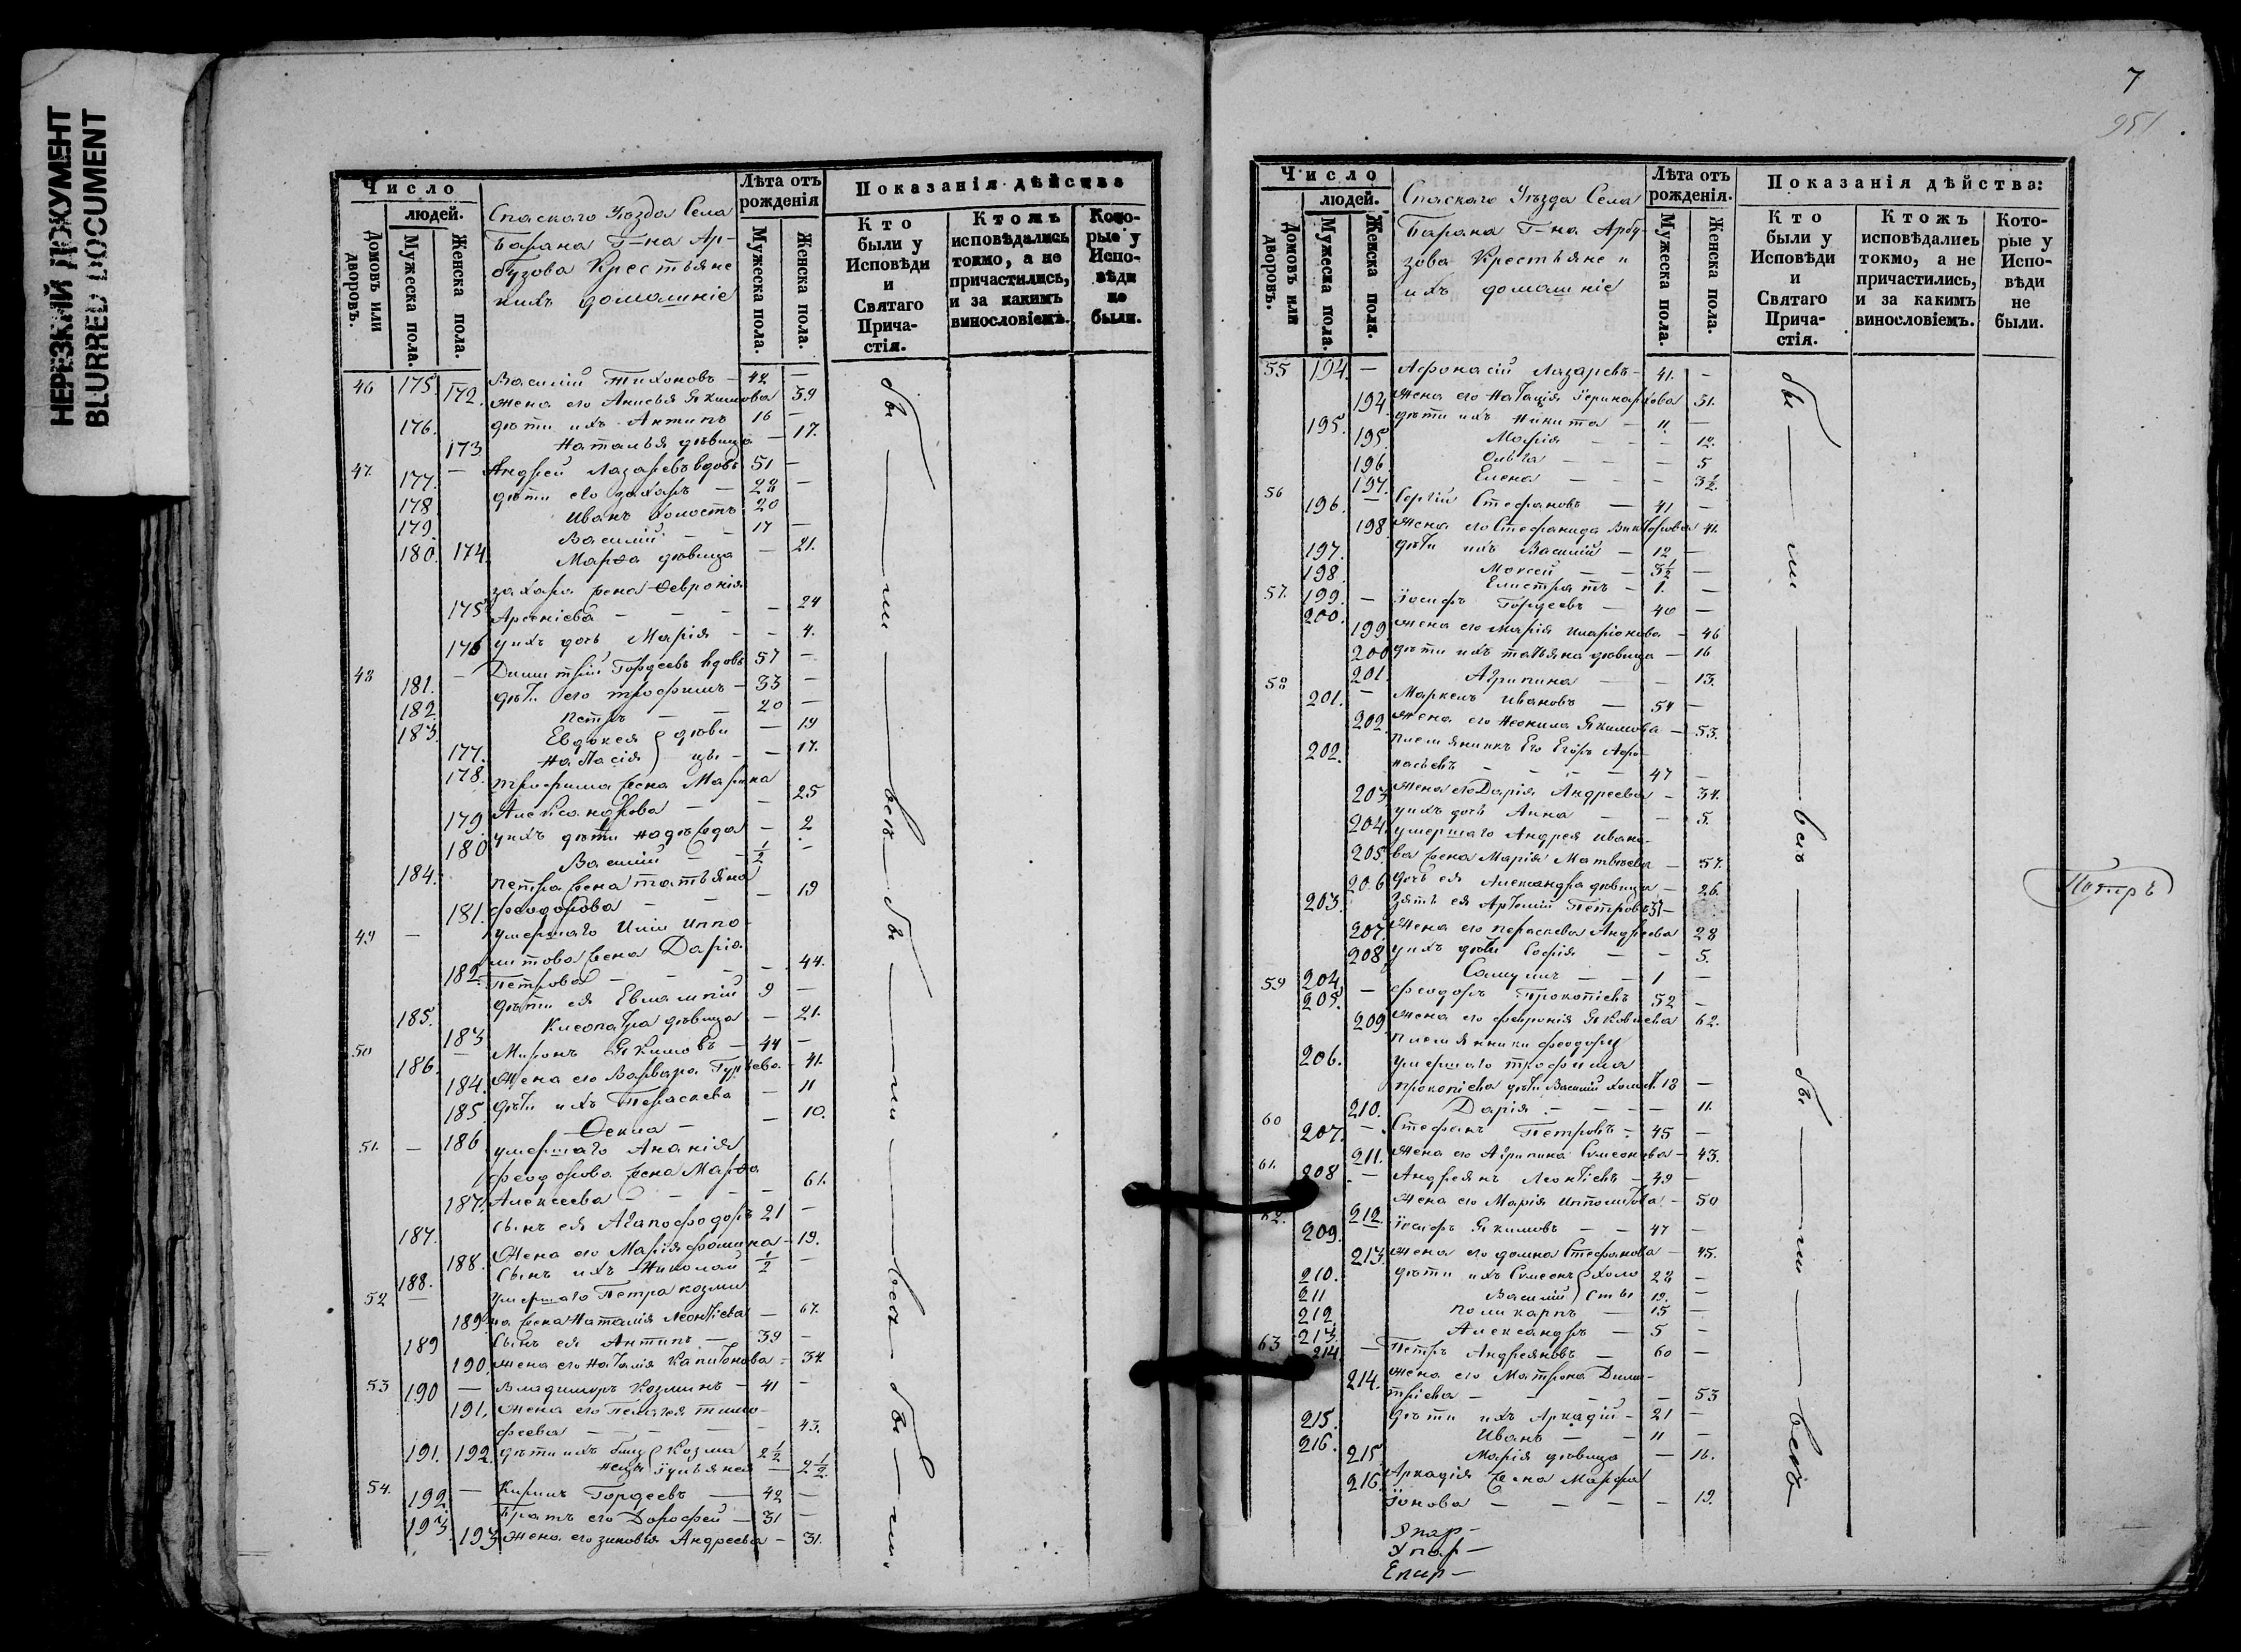 НЕРЕЗКИЙ ДОКУМЕНТ
BLURRED DOCUMENT
Число
людей.
Домовъ или дворовъ.
Мужеска пола.
Женска пола.
Спаскаго Уѣзда Села
Барана Г-на Ар-
бузова Крестьяне
ихъ домашніе
Лѣта отъ рожденія
Мужеска пола.
Женска пола.
Показанія дѣйства
Кто были у Исповѣди и Святаго Прича-стія.
Ктожъ исповѣдались токмо, а не причастились, и за какимъ винословіемъ.
Кото-рые у Испо-вѣди не были.
46 175. 172. Василій Тихоновъ – 42 –
жена его Анисья Якимова 39
176. дѣти ихъ Антипъ 16 –
173 Наталья дѣвица – 17.
47. 177. – Андрей Лазаревъ вдовъ 51 –
178 дѣти его Захаръ – 28 –
179. Иванъ холостъ 20
180. 174. Василий – – 17 –
Марѳа дѣвица – 21.
Захара жена Февронія
175 Арсеніева – – – – 24
176 у нихъ дочь Марія – – 4.
48 181. – Димитрій Гордеевъ вдовъ 57 –
182. дѣти его Трофимъ – 33 –
183. Петръ – – 20 –
177. Евдокея } дѣви – 19
178. Настасія } цы – – 17.
Трофима жена Марина
179 Александрова – – 25
180 у нихъ дѣти Надежда – 2
184. Василий – – 1/2 –
Петра жена Татьяна
181. Феодорова – – – 19
49 – умершаго Иппо-
литова жена Дарія
182. Петрова – – – – 44.
185. дѣти ея Евлампій 9 –
183 Клеопатра дѣвица – 21.
50 186. – Миронъ Якимовъ – 44 –
184. Жена его Варвара Гурьева – 41.
185. Дѣти ихъ Параскева – 11
186 Ѳекла – – 10.
51. – умершаго Ананія
Феодорова жена Марѳа
187. Алексеева – – – – 61.
187. Сынъ ея Агапофодоръ 21 –
188. Жена его Марія Фомина – 19.
188. Сынъ ихъ Николай 1/2 –
52 Умершаго Петра Козми
189. на жена Наталія Леонтіева – 67.
189 Сынъ ея Антипъ – 39 –
190. жена его Наталія Капитонова – 34.
53 190 – Владимиръ Козминъ – 41 –
191. жена его Пелагея Тимо-
феева – – – – – 43.
191. 192. дѣти ихъ близ { Козма 2 1/2
нецы Іульянея – 2 1/2.
54. 192 – Кирилъ Гордеевъ – 42 –
193. Братъ его Дорофей – 31 –
193. жена его Зиновья Андреева – 31.
бы – ли – всѣ – бы – ли – всѣ – бы – ли.
7
951
Число
людей.
Домовъ или дворовъ.
Мужеска пола.
Женска пола.
Спаскаго Уѣзда Села
Барана Г-на Арбу-
зова Крестьяне и
ихъ домашніе
Лѣта отъ рожденія.
Мужеска пола.
Женска пола.
Показанія дѣйства:
Кто были у Исповѣди и Святаго Прича-стія.
Ктожъ исповѣдались токмо, а не причастились, и за какимъ винословіемъ.
Кото-рые у Испо-вѣди не были.
55 194. – Афонасій Лазаревъ – 41. –
194. жена его Наталія 31.
195. дѣти ихъ Никита – 11. –
195. Марія – – – 12.
196. Ольга – – – 5
197. Елена – – – 3 1/2.
56 196. – Сергій Стефановъ – 41 –
198. Жена его Стефанида Викторова 41.
197. дѣти ихъ Василій – 12 –
198. Моисей – – 3 1/2 –
199. Елистратъ – 1. –
57. 200. – Іосифъ Гордеевъ – 40 –
199. жена его Марія Иларіонова – 46
200 дѣти ихъ Татьяна дѣвица – 16
201. Агрипина – – 13.
58 201. – Маркелъ Ивановъ – 54 –
202. жена его Неонила Якимова – 53.
202. племянникъ Его Егоръ Афо-
насьевъ – – – – 47 –
203 жена его Дарія Андреева – 34.
204. у нихъ дочь Анна – – 5.
умершаго Андрея Ивано-
205. ва жена Марія Матвѣева – 57.
206 дочь ея Александра дѣвица – 26.
203. Зять ея Артемій Петровъ 31 –
207. Жена его Параскева Андреева 28
208 у нихъ дѣти Софія – – 5.
204. Самуилъ – – 1 –
59 205. – Феодоръ Прокопіевъ 52 –
209. жена его Февронія Яковлева 62.
206. племянники Феодору
умершаго Трофима
Прокопіева дѣти Василий холост. 18 –
210. Дарія – – – – 11.
60 207. – Стефанъ Петровъ – 45 –
211. жена его Агрипина Симеонова – 43.
61. 208. – Андреянъ Леонтіевъ – 49 –
212. жена его Марія Ипполитова – 50
62. 209. Іосифъ Якимовъ – – 47 –
213. жена его Домна Стефанова – 45.
210. дѣти ихъ Симеонъ } холо 28 –
211 Василий } сты 19. –
212. Поликарпъ – 15 –
213. Александръ – 5 –
63 214. – Петръ Андреяновъ – 60 –
214. Жена его Матрона Дими-
тріева – – – – 53
215. дѣти ихъ Аркадій – 21 –
216. Иванъ – – 11 –
215. Марія дѣвица – 16.
216. Аркадія жена Марфа
Іонова – – – – 19.
бы – ли – всѣ – бы – ли – всѣ